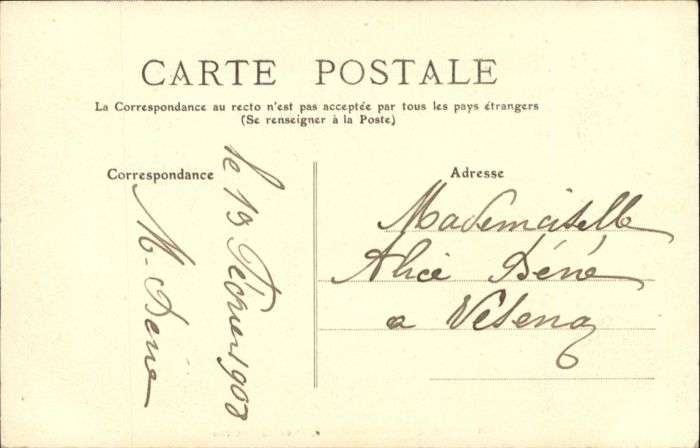 CARTE POSTALE
La Correspondance au recto n'est pas acceptée par tous les pays étrangers
(Se renseigner à la Poste)
Correspondance
le 13 Février 1908
M. Béné
Adresse
Mademoiselle
Alice Béné
a Vesenaz